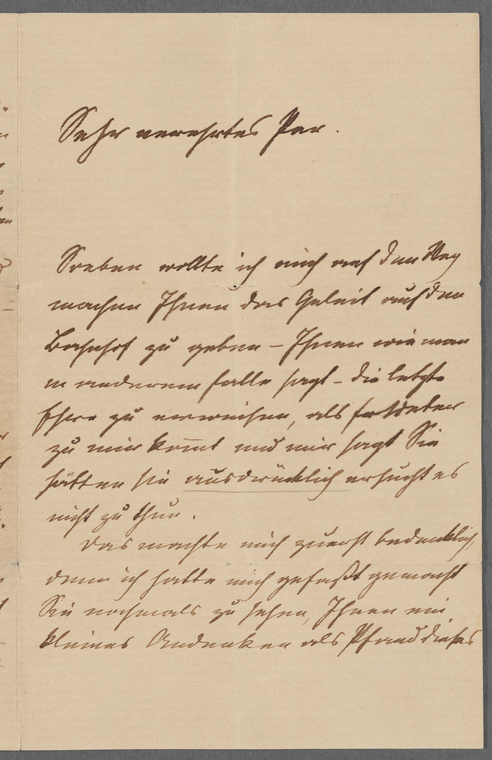 Sehr verehrtes Paar.
Soeben wollte ich mich auf den Weg
machen Ihnen das Geleit auf den
Bahnhof zu geben – Ihnen wie man
in anderem Falle sagt – die letzte
Ehre zu erweisen, als
zu mir kommt und mir sagt Sie
hätten sie ausdrücklich ersucht es
nicht zu thun.
Das machte mich zuerst bedenklich,
denn ich hatte mich gefaßt gemacht
Sie nochmals zu sehen, Ihnen ein
kleines Andenken als Pfand dieses